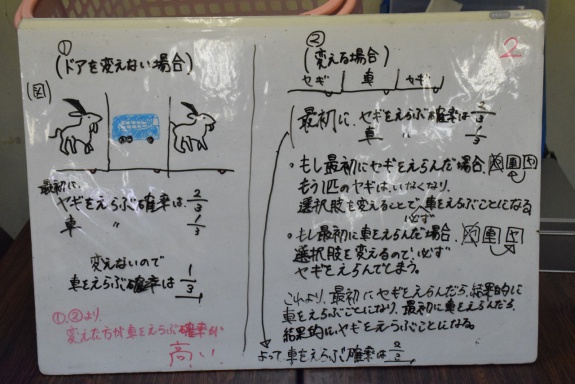 ①
(ドアを変えない場合)
(図)
最初に、
ヤギをえらぶ確率は 2/3
車 〃 1/3
変えないので
車をえらぶ確率は 1/3
①、②より、
変えた方が車をえらぶ確率が
高い!
②
(変える場合)
2
ヤギ 車 ヤギ
最初に、ヤギをえらぶ確率は 2/3
車 〃 1/3
・もし最初にヤギをえらんだ場合、
もう1匹のヤギは、いなくなり、
選択肢を変えることで、車をえらぶことになる
必ず
・もし最初に車をえらんだ場合、
選択肢を変えるので、必ず
ヤギをえらんでしまう。
これより、最初にヤギをえらんだら、結果的に
車をえらぶことになり、最初に車をえらんだら、
結果的にヤギをえらぶことになる。
よって車をえらぶ確率は 2/3